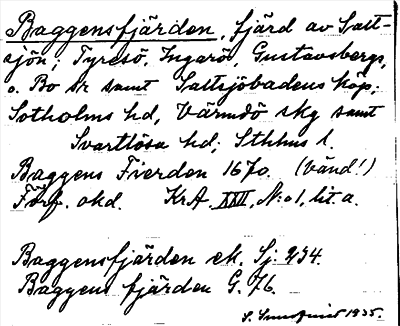 Baggensfjärden, fjärd av Salt-
sjön; Tyresö, Ingarö, Gustavsbergs,
o. Bo sr samt Saltsjöbadens köp.
Sotholms hd, Värmdö skg samt
Svartlösa hd; Sthlms l.
Baggens Fierden 1670. (vänd!)
Förf. okd. KrA XXII, N:o 1, lit. a.
Baggensfjärden ek. Sj. 234.
Baggens fjärden G. 76.
S. 1935.